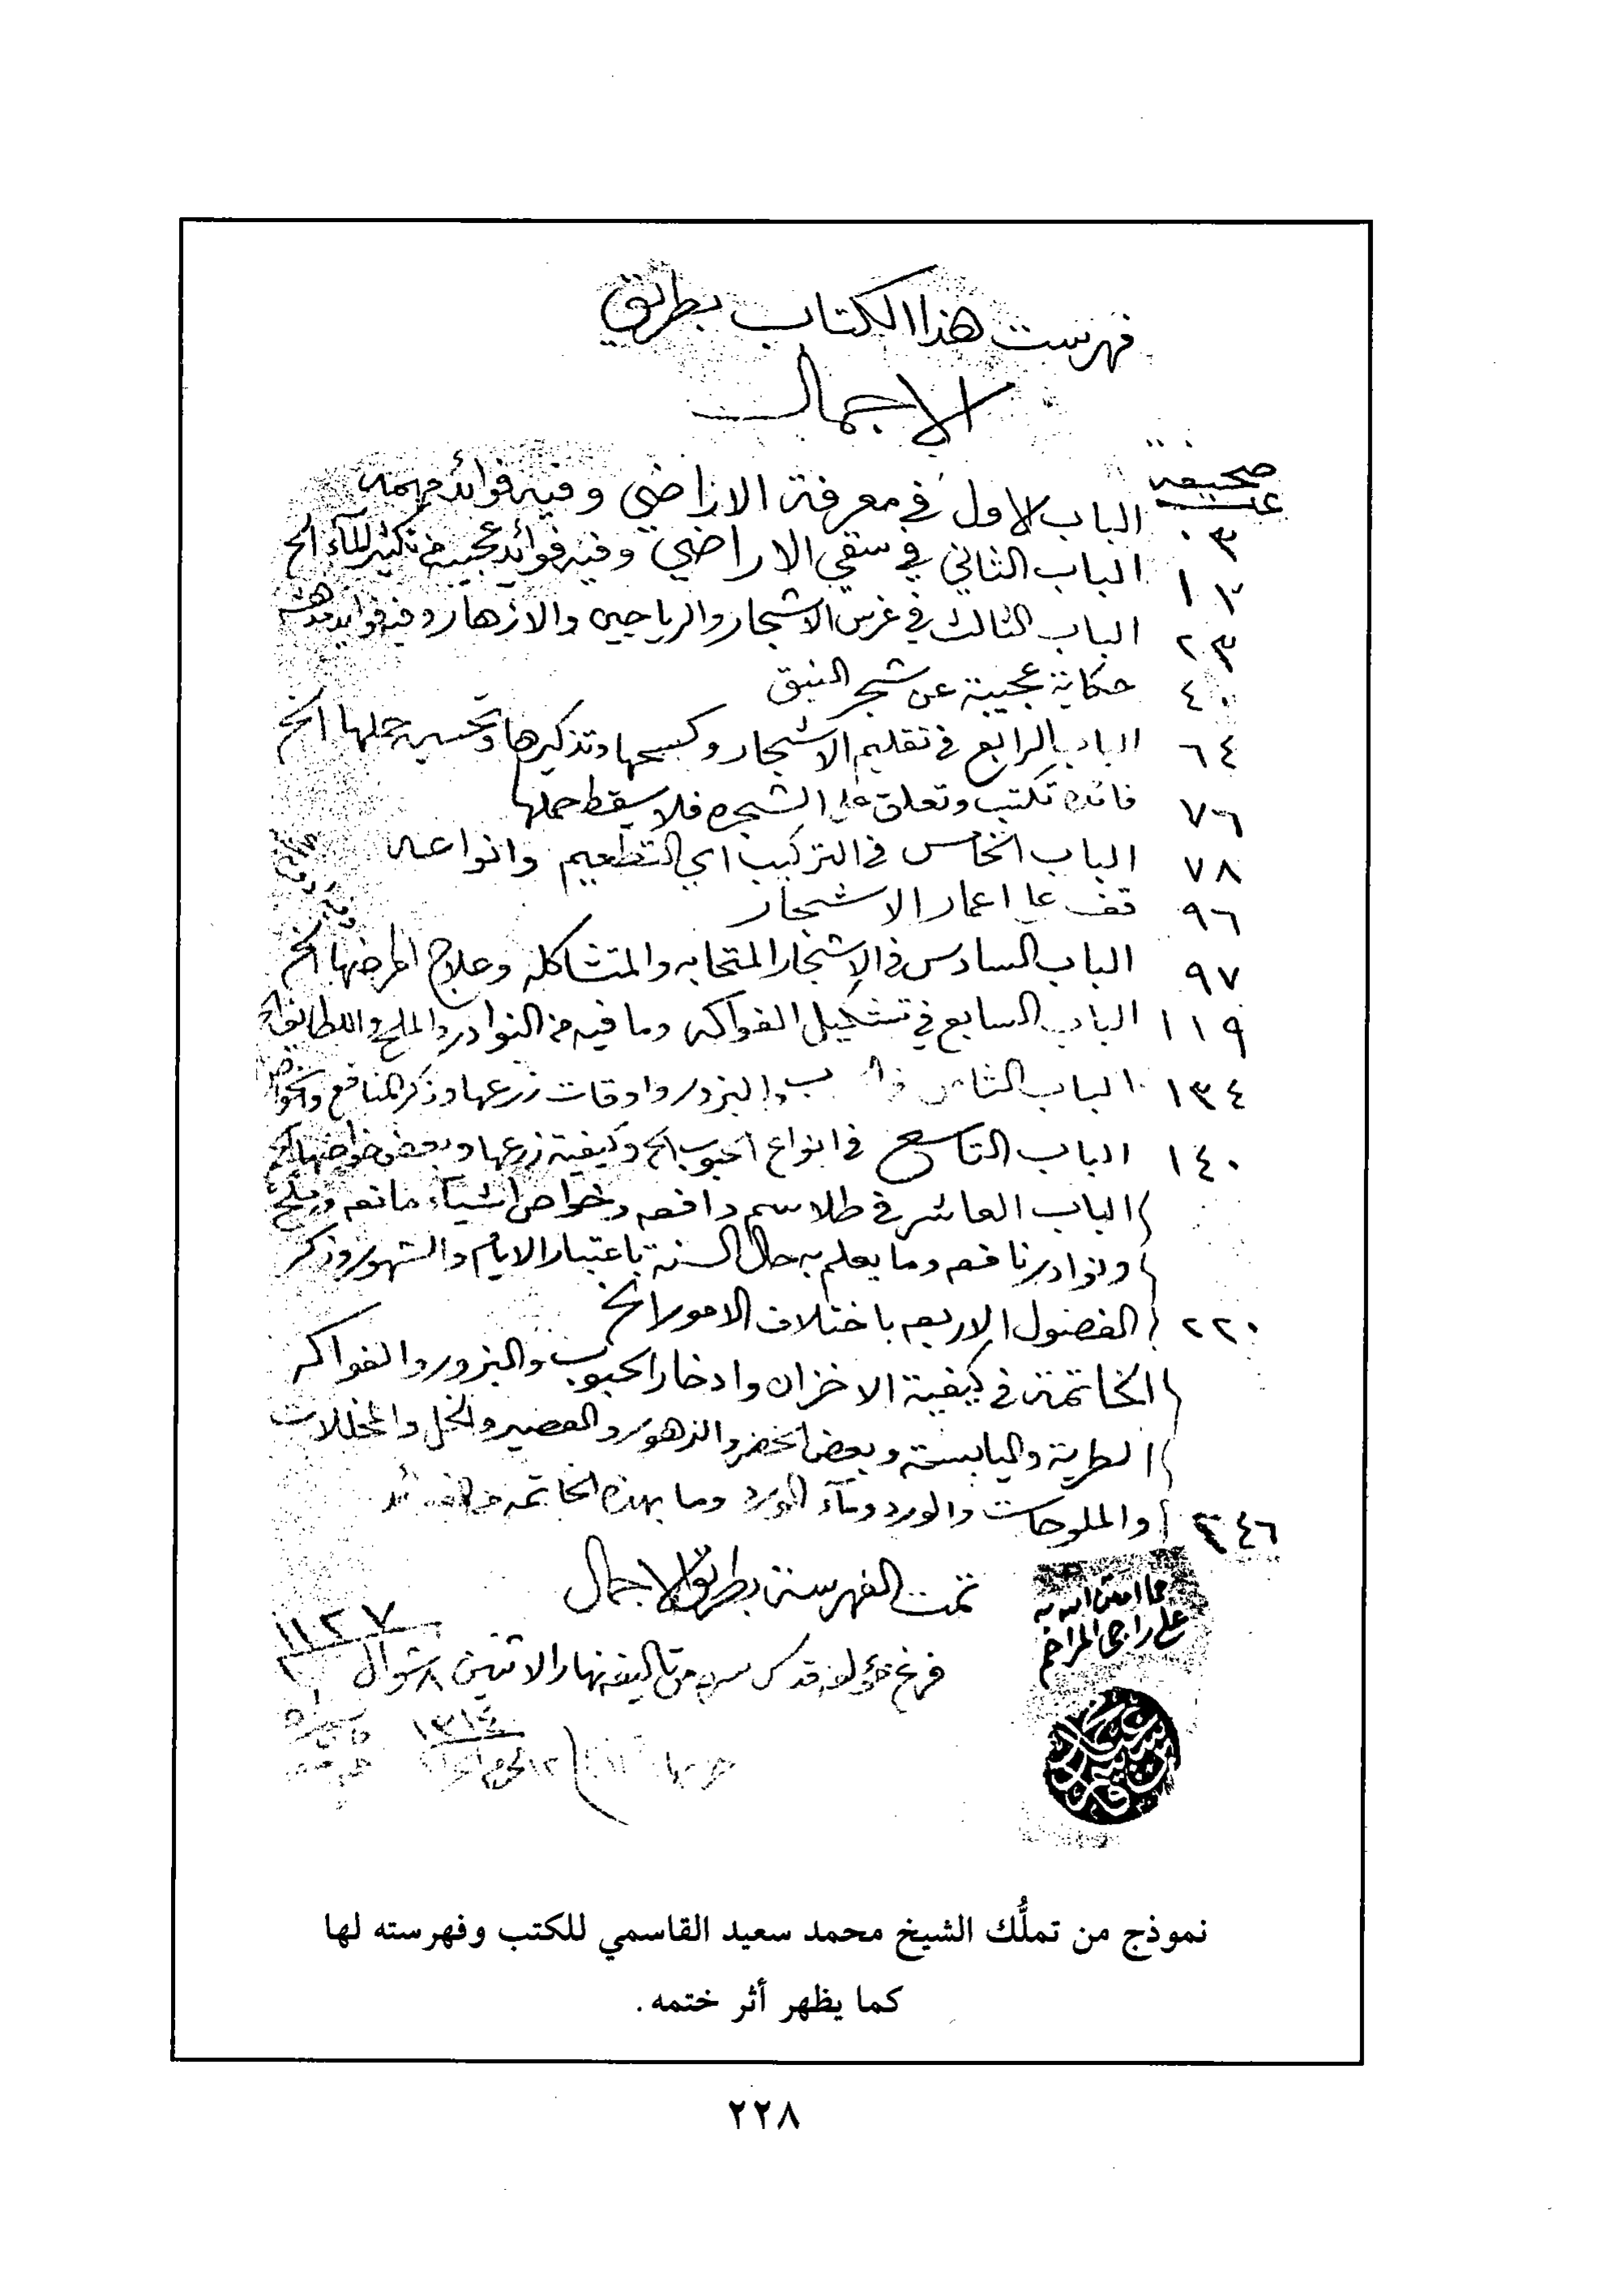 فهرست هذا الكتاب بطريق
الاجمال
صحيفة
عدد
٠٣ الباب الاول في معرفة الاراضي وفيه فوائد مهمه
١٢ الباب الثاني في سقي الاراضي وفيه فوائد عجيبه في تكثير الماء الخ
٢٣ الباب الثالث في غرس الاشجار والرياحين والازهار وفيه فوائد مدهشه
٤٠ حكاية عجيبة عن شجر النبق
٦٤ الباب الرابع في تقليم الاشجار وكسحها وتذكيرها وتحسين حملها الخ
٧٦ فائده تكتب وتعلق على الشجره فلا يسقط حملها
٧٨ الباب الخامس في التركيب اي التطعيم وانواعه
٩٦ قف على اعمار الاشجار
٩٧ الباب السادس في الاشجار المتحابه والمتشاكله وعلاج امراضها الخ
١١٩ الباب السابع في تشكيل الفواكه وما فيه من النوادر والملح واللطائف
١٣٤ الباب الثامن في والبزور واوقات زرعها وذكر المنافع والخواص
١٤٠ الباب التاسع في انواع الحبوب الخ وكيفية زرعها وبعض خواصها الخ
الباب العاشر في طلاسم دافعه وخواص اشياء مانعه وملح
ونوادر نافعه وما يعلم به حال السنة باعتبار الايام والشهور وذكر
٢٢٠ الفصول الاربعه باختلاف الامور الخ
الخاتمة في كيفية الاخزان وادخار الحبوب والبزور والفواكه
الطرية واليابسة وبعض الخضر والزهور والعصير والخل والمخللات
٢٤٦ والملوحات والورد وماء الورد وما بهذه الخاتمه من الفوائد
تمت الفهرسة بطريق الاجمال
مما امتن الله به
على راجي المراحم
١١٢٧
فرغ مؤلفه قدس سره من تاليفه نهار الاثنين ٨ شوال
١٣١٤
نموذج من تملُّك الشيخ محمد سعيد القاسمي للكتب وفهرسته لها
كما يظهر أثر ختمه.
٢٢٨